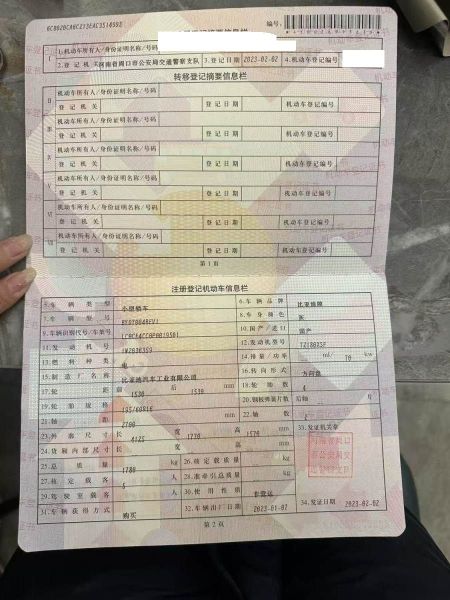 编号:
1.机动车所有人/身份证明名称/号码
2.登记机关 河南省周口市公安局交通警察支队 3.登记日期 2023-02-02 4.机动车登记编号
转移登记摘要信息栏
Ⅱ 机动车所有人/身份证明名称/号码
登记机关 登记日期 机动车登记编号
Ⅲ 机动车所有人/身份证明名称/号码
登记机关 登记日期 机动车登记编号
Ⅳ 机动车所有人/身份证明名称/号码
登记机关 登记日期 机动车登记编号
Ⅴ 机动车所有人/身份证明名称/号码
登记机关 登记日期 机动车登记编号
Ⅵ 机动车所有人/身份证明名称/号码
登记机关 登记日期 机动车登记编号
Ⅶ 机动车所有人/身份证明名称/号码
登记机关 登记日期 机动车登记编号
第1页
注册登记机动车信息栏
5.车辆类型 小型轿车 6.车辆品牌 比亚迪牌
7.车辆型号 8.车身颜色 灰
9.车辆识别代号/车架号 10.国产/进口 国产
11.发动机号 12.发动机型号 TZ180XSF
13.燃料种类 电 14.排量/功率 ml/ 70 kw
15.制造厂名称 比亚迪汽车工业有限公司 16.转向形式 方向盘
17.轮距 前 1530 后 1530 mm 18.轮胎数 4
19.轮胎规格 195/60R16 20.钢板弹簧片数 后轴
21.轴距 2700 mm 22.轴数 2
23.外廓尺寸 长 4125 宽 1770 高 1570 mm 33.发证机关章
24.货厢内部尺寸 长 宽 高 mm
25.总质量 1780 kg 26.核定载质量 kg
27.核定载客 5 人 28.准牵引总质量 kg
29.驾驶室载客 人 30.使用性质 非营运
31.车辆获得方式 购买 32.车辆出厂日期 2023-01-07 34.发证日期 2023-02-02
第2页